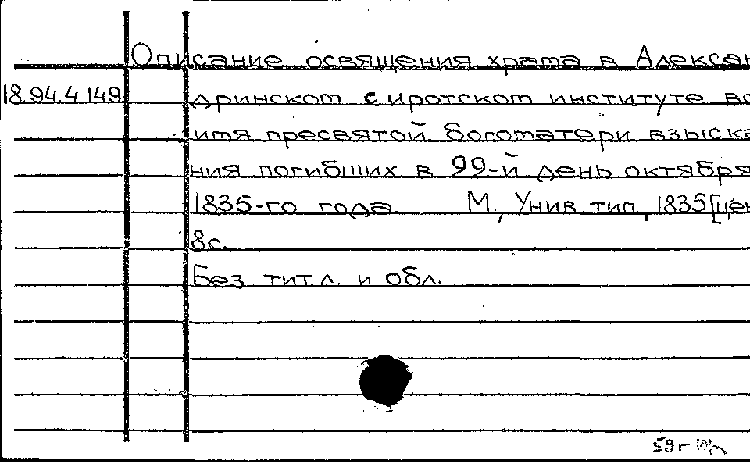 Описание освящения храма в Алексан
18.94.4.149 дринском сиротском институте во
имя пресвятой богоматери взыска
ния погибших в 99-й день октября
1835-го года М, Унив. тип, 1835 [цен
8с.
Без тит.л. и обл.
59г